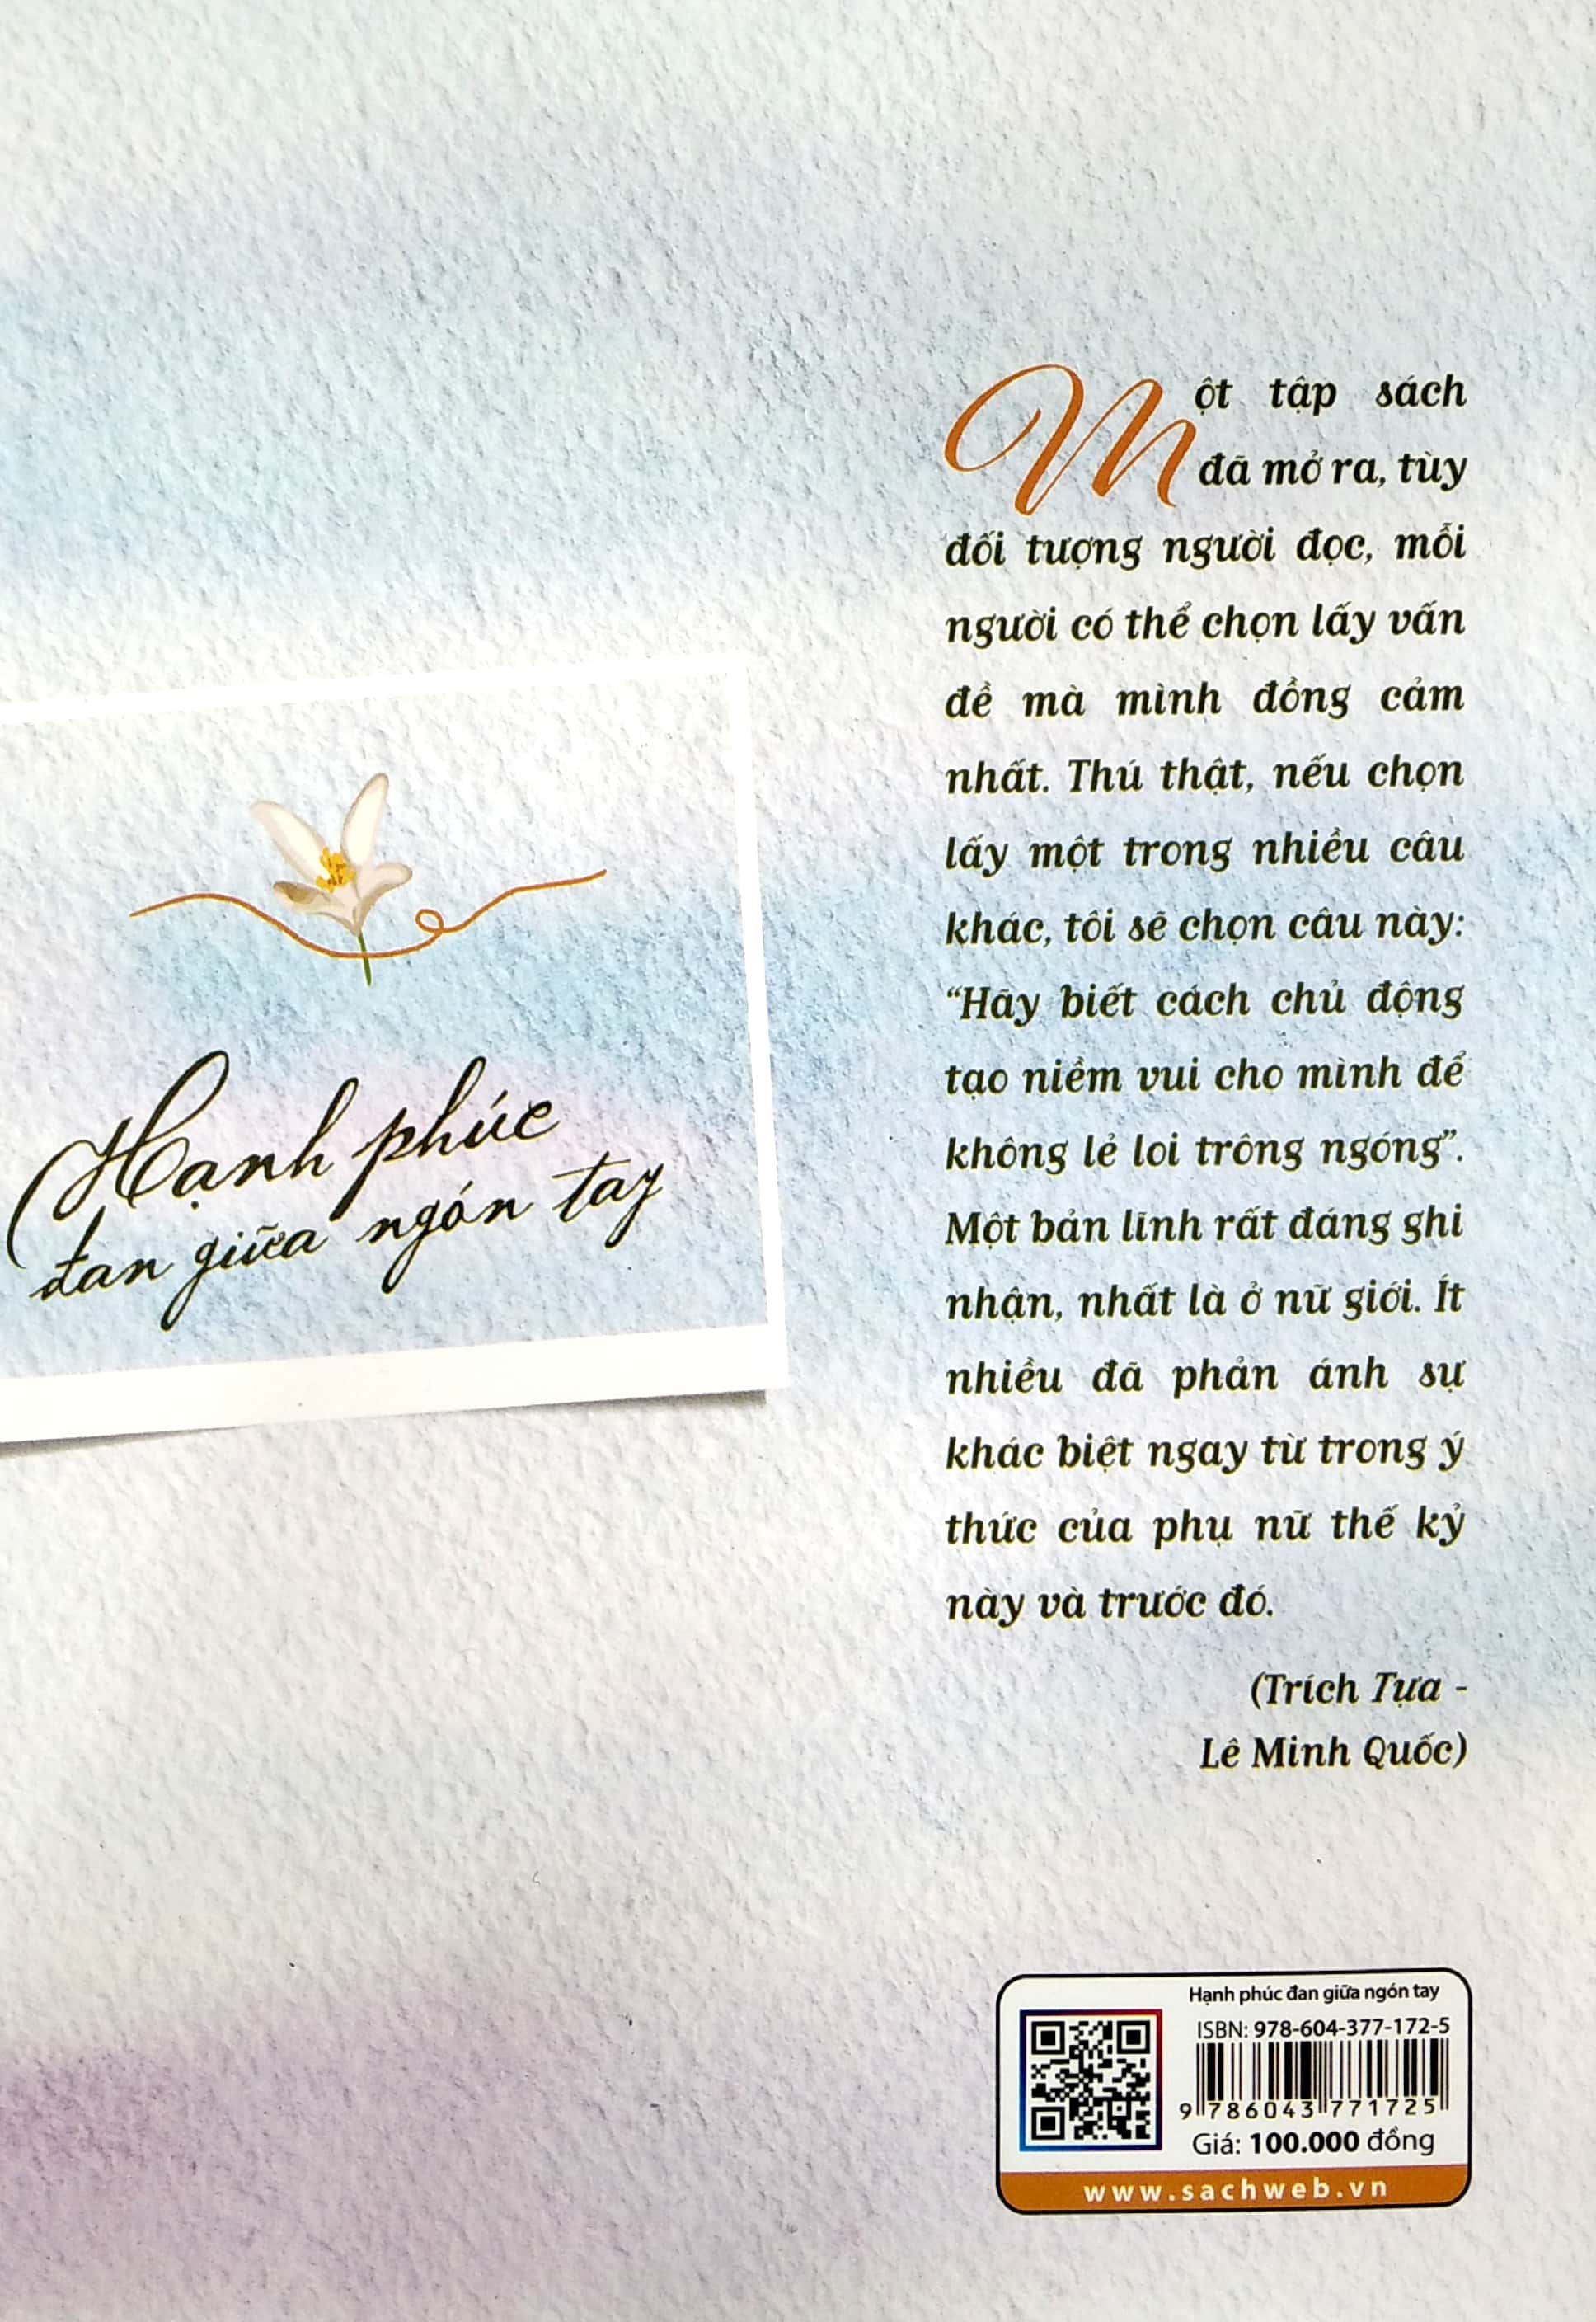 Hạnh phúc
đan giữa ngón tay
Một tập sách
đã mở ra, tùy
đối tượng người đọc, mỗi
người có thể chọn lấy vấn
đề mà mình đồng cảm
nhất. Thú thật, nếu chọn
lấy một trong nhiều câu
khác, tôi sẽ chọn câu này:
“Hãy biết cách chủ động
tạo niềm vui cho mình để
không lẻ loi trông ngóng”.
Một bản lĩnh rất đáng ghi
nhận, nhất là ở nữ giới. Ít
nhiều đã phản ánh sự
khác biệt ngay từ trong ý
thức của phụ nữ thế kỷ
này và trước đó.
(Trích Tựa -
Lê Minh Quốc)
Hạnh phúc đan giữa ngón tay
ISBN: 978-604-377-172-5
9 786043 771725
Giá: 100.000 đồng
www.sachweb.vn